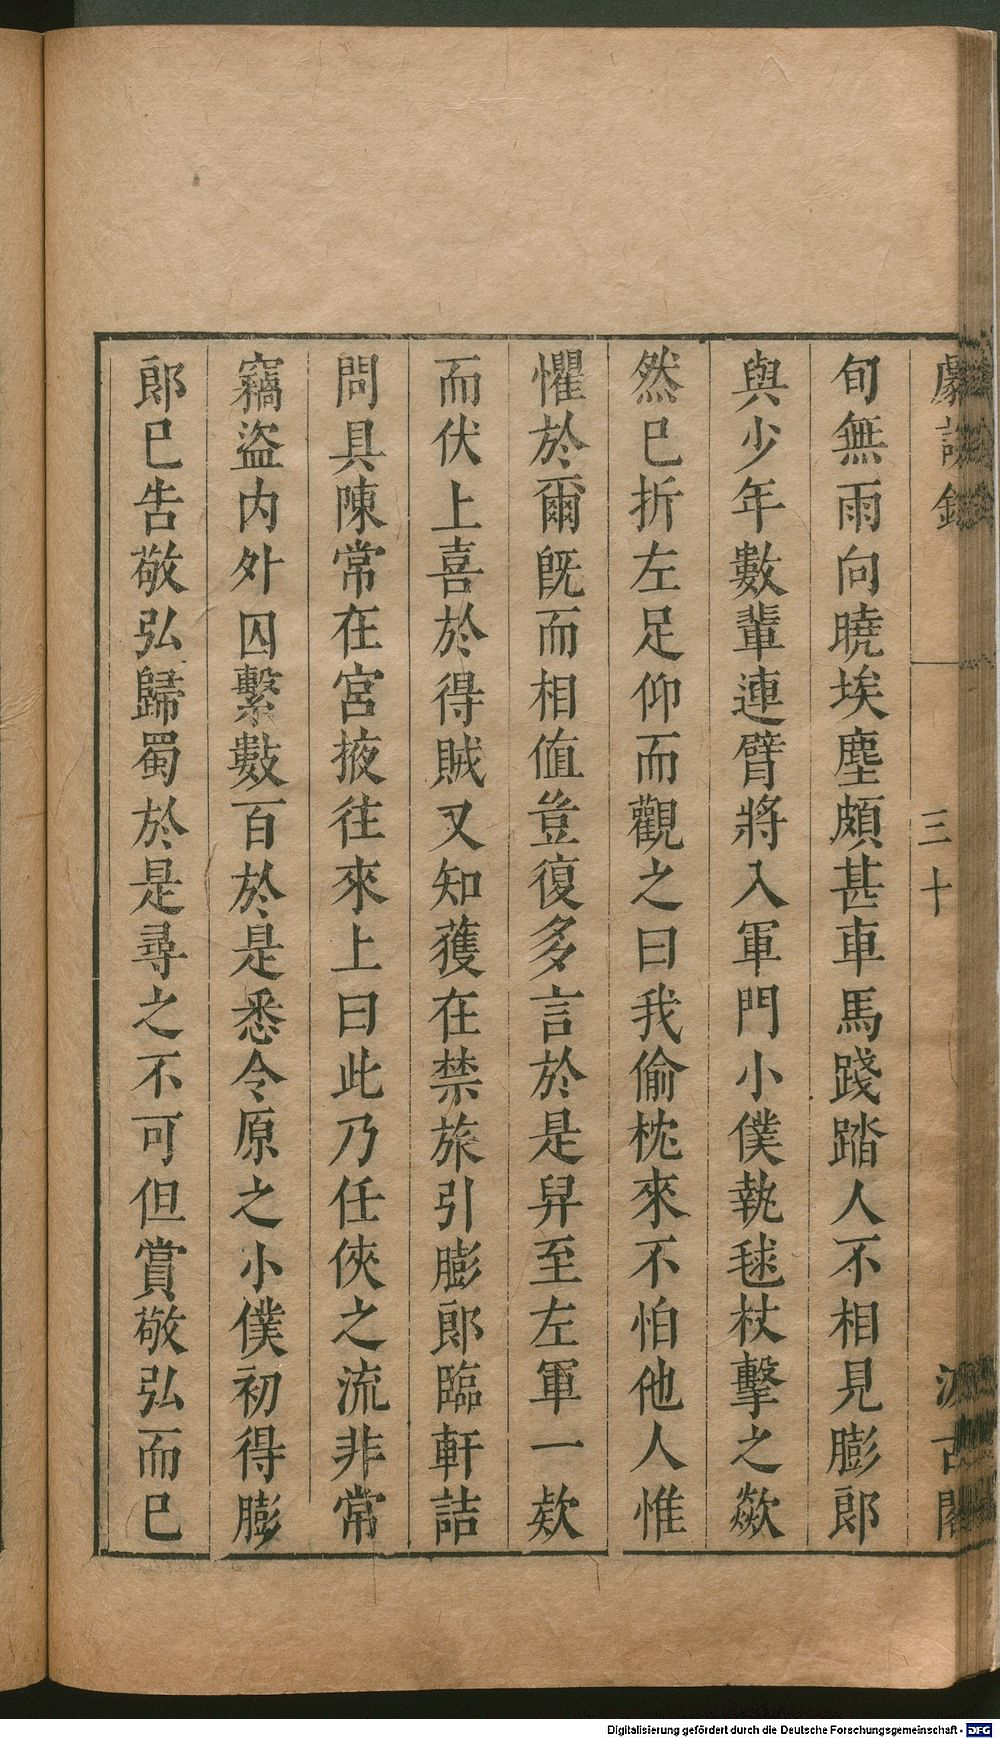 劇談錄 三十 汲古閣
旬無雨向曉埃塵頗甚車馬踐踏人不相見膨郎
與少年數輩連臂將入軍門小僕執毬杖擊之歘
然已折左足仰而觀之曰我偷枕來不怕他人惟
懼於爾既而相值豈復多言於是舁至左軍一欵
而伏上喜於得賊又知獲在禁旅引膨郎臨軒詰
問具陳常在宮掖往來上曰此乃任俠之流非常
竊盜内外囚繫數百於是悉令原之小僕初得膨
郎已告敬弘歸蜀於是尋之不可但賞敬弘而已
Digitalisierung gefördert durch die Deutsche Forschungsgemeinschaft - DFG